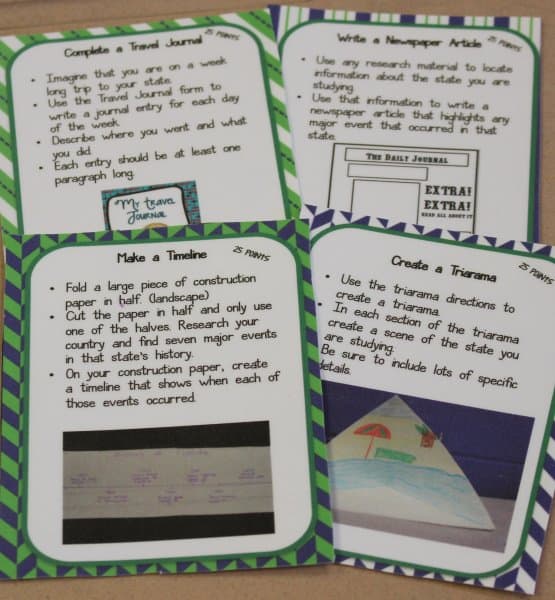 Complete a Travel Journal
25 POINTS
• Imagine that you are on a week
long trip to your state.
• Use the Travel Journal form to
write a journal entry for each day
of the week.
• Describe where you went and what
you did.
• Each entry should be at least one
paragraph long.
My Travel
Journal
Write a Newspaper Article
25 POINTS
• Use any research material to locate
information about the state you are
studying.
• Use that information to write a
newspaper article that highlights any
major event that occurred in that
state.
THE DAILY JOURNAL
EXTRA!
EXTRA!
READ ALL ABOUT IT
Make a Timeline
25 POINTS
• Fold a large piece of construction
paper in half. (landscape)
• Cut the paper in half and only use
one of the halves. Research your
country and find seven major events
in that state's history.
• On your construction paper, create
a timeline that shows when each of
those events occurred.
Create a Triarama
25 POINTS
• Use the triarama directions to
create a triarama.
• In each section of the triarama
create a scene of the state you
are studying.
Be sure to include lots of specific
details.